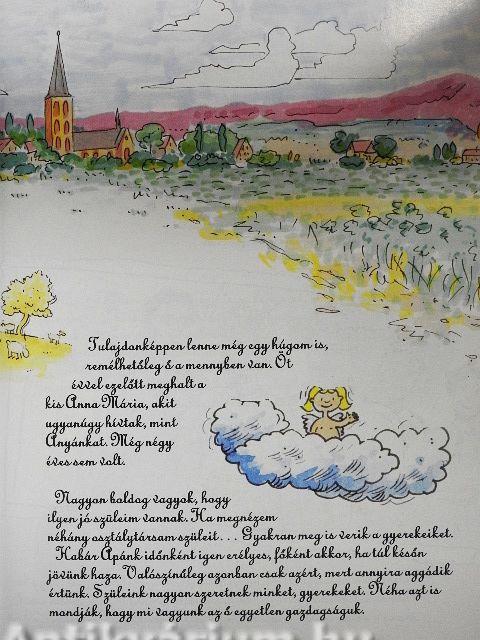 Tulajdonképpen lenne még egy húgom is,
remélhetőleg ő a mennyben van. Öt
évvel ezelőtt meghalt a
kis Anna Mária, akit
ugyanúgy hívtak, mint
Anyánkat. Még négy
éves sem volt.
Nagyon boldog vagyok, hogy
ilyen jó szüleim vannak. Ha megnézem
néhány osztálytársam szüleit... Gyakran meg is verik a gyerekeiket.
Habár Apánk időnként igen erélyes, főként akkor, ha túl későn
jövünk haza. Valószínűleg azonban csak azért, mert annyira aggódik
értünk. Szüleink nagyon szeretnek minket, gyerekeket. Néha azt is
mondják, hogy mi vagyunk az ő egyetlen gazdagságuk.
Antikvarium.hu